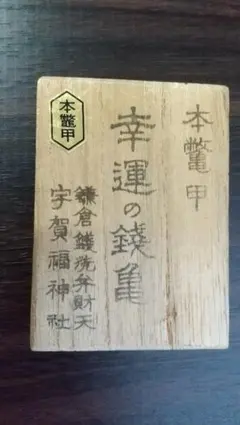 本鼈甲
幸運の銭亀
鎌倉銭洗弁財天
宇賀福神社
本鼈甲